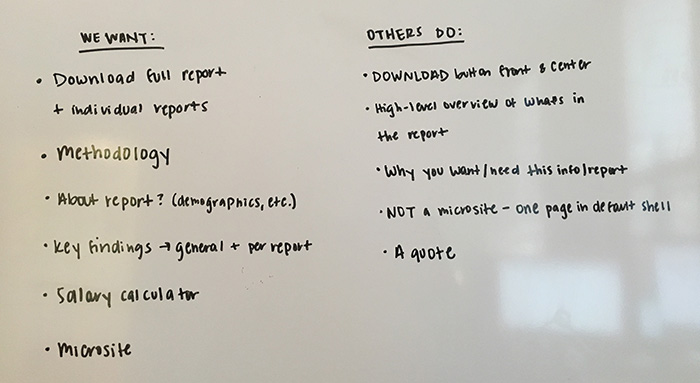 WE WANT:
• Download full report
+ individual reports
• Methodology
• About report? (demographics, etc.)
• Key findings → general + per report
• Salary calculator
• Microsite
OTHERS DO:
• DOWNLOAD button front & center
• High-level overview of what's in
the report
• Why you want/need this info/report
• NOT a microsite - one page in default shell
• A quote